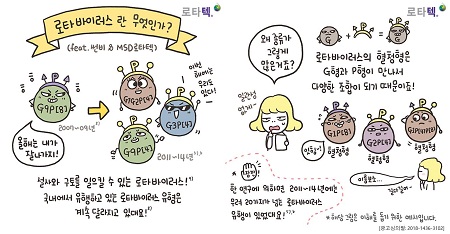 로타텍.
로타바이러스 란 무엇인가?
(feat. 번비 & MSD로타텍)
G9P[8]
올해는 내가
잘나가지!
2007-09년
G1G2P[4]
이번
해에는
우리도
있다!
G3P[4]
G9P[4]
2011-14년
설사와 구토를 일으킬 수 있는 로타바이러스!
국내에서 유행하고 있는 로타바이러스 유형은
계속 달라지고 있대요!
로타텍.
왜 종류가
그렇게
많은거죠?
로타바이러스의 혈청형은
G형과 P형이 만나서
다양한 조합이 되기 때문이죠!
G1P[8]
G2P[4]
G1P[4]P[8]
혈청형
혈청형
혈청형
한 연구에 의하면 2011-14년에는
무려 20가지가 넘는 로타바이러스
유형이 있었대요!
* 해당 그림은 이해를 돕기 위한 예시입니다.